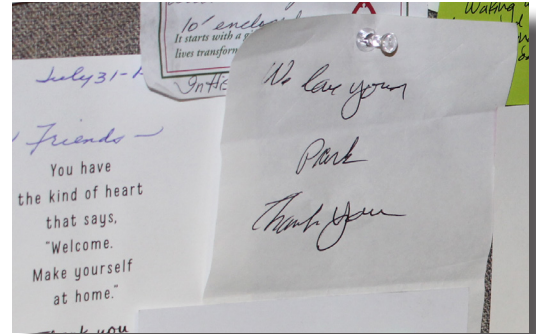 10' enclosed
It starts with a
lives transform
July 31-
In His
Friends -
You have
the kind of heart
that says,
"Welcome.
Make yourself
at home."
Thank you
We love your
Park
Thank you
Waking